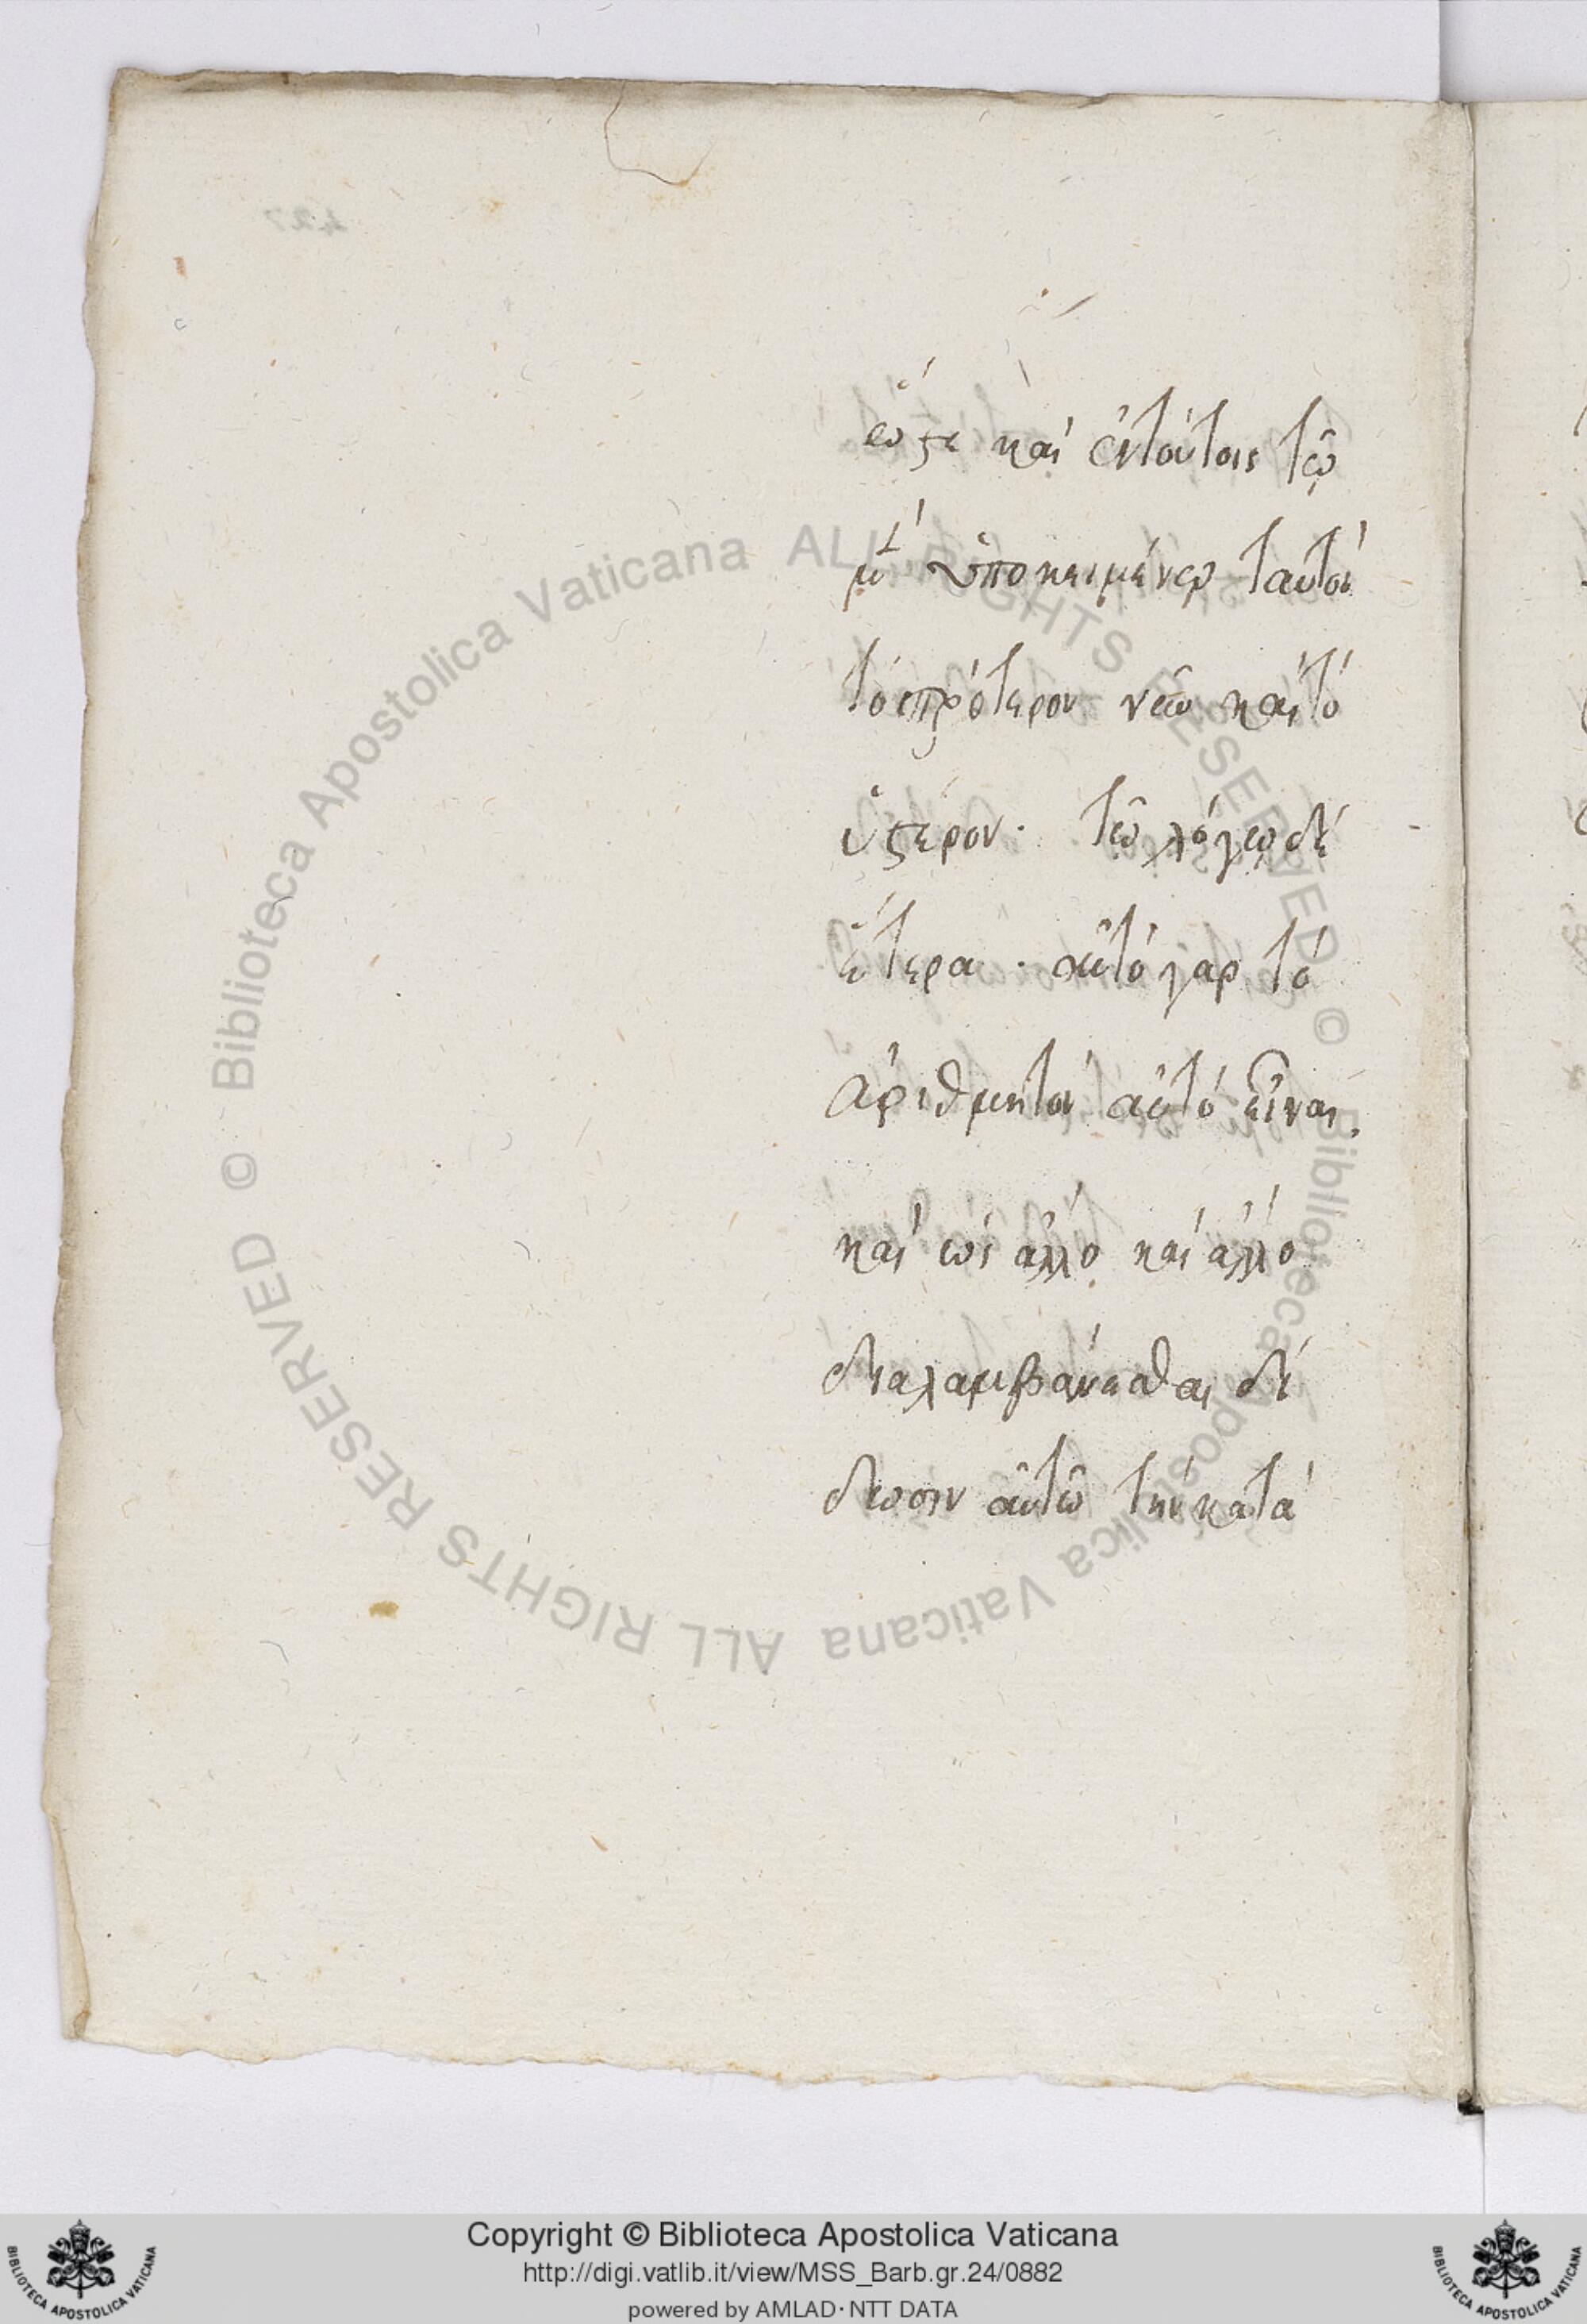 ὥστε καὶ ἐν τούτοις τῷ
μὲν ὑποκειμένῳ ταυτὸν
τὸ πρότερον νῦν καὶ τὸ
ὕστερον· τῷ λόγῳ δὲ
ἕτερα· αὐτὸ γὰρ τὸ
ἀριθμητὸν αὐτὸ εἶναι,
καὶ ὡς ἄλλο καὶ ἄλλο
διαλαμβάνεσθαι δί
δωσιν αὐτῷ τὴν κατὰ
Biblioteca Apostolica Vaticana ALL RIGHTS RESERVED ©
Biblioteca Apostolica Vaticana ALL RIGHTS RESERVED ©
Copyright © Biblioteca Apostolica Vaticana
http://digi.vatlib.it/view/MSS_Barb.gr.24/0882
powered by AMLAD · NTT DATA
BIBLIOTECA APOSTOLICA VATICANA
BIBLIOTECA APOSTOLICA VATICANA